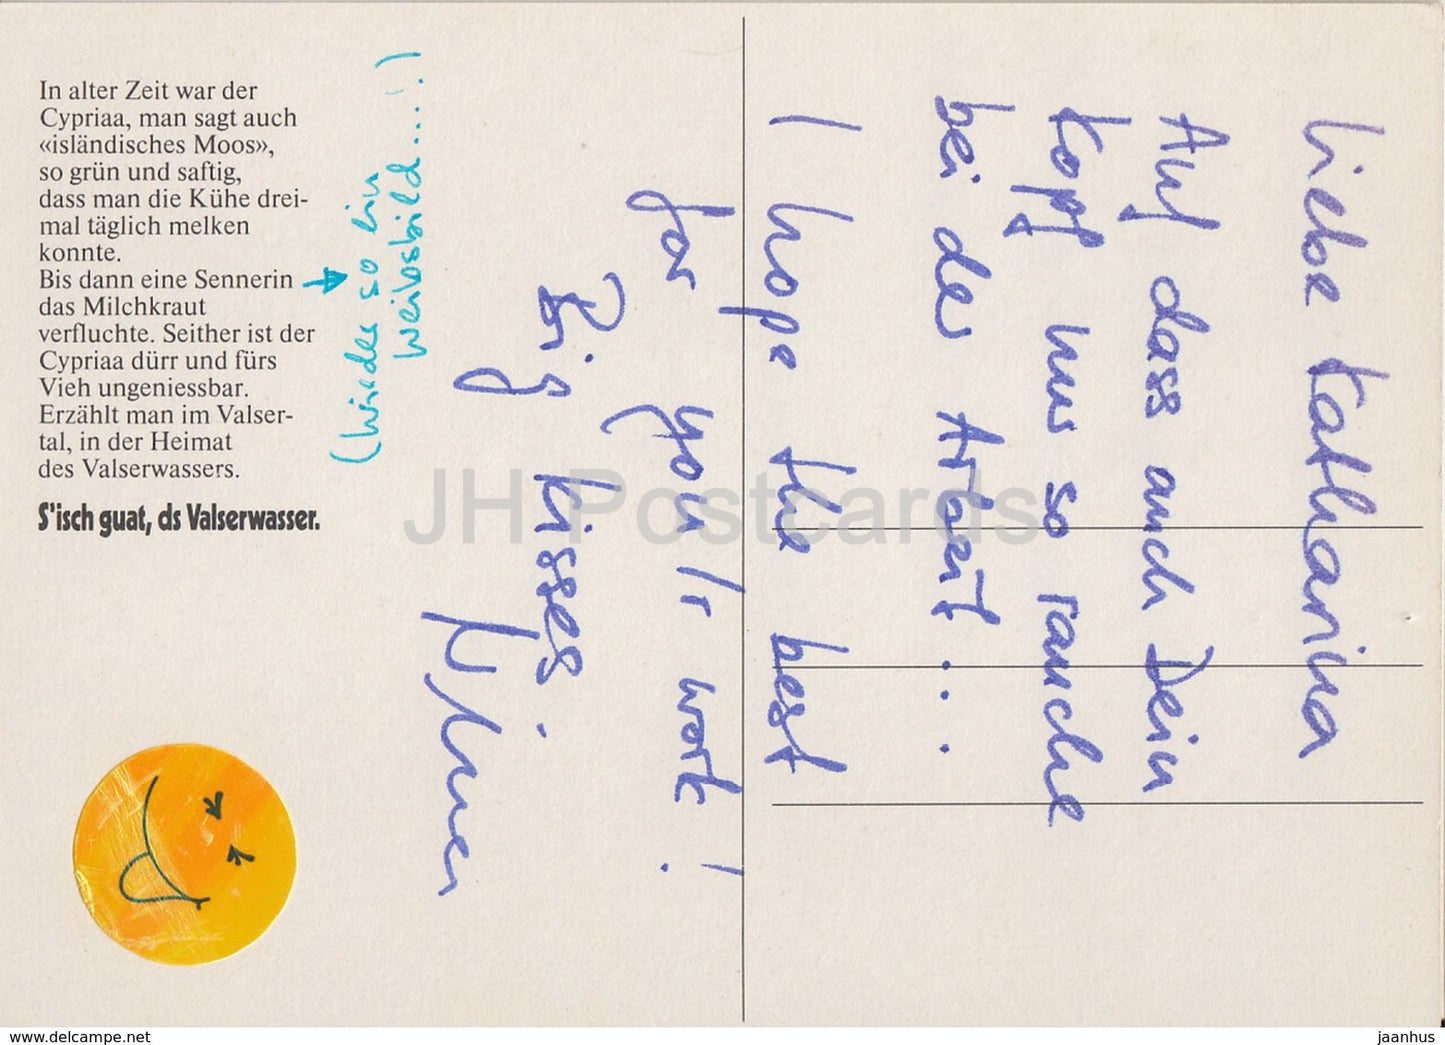 In alter Zeit war der
Cypriaa, man sagt auch
«isländisches Moos»,
so grün und saftig,
dass man die Kühe drei-
mal täglich melken
konnte.
Bis dann eine Sennerin
das Milchkraut
verfluchte. Seither ist der
Cypriaa dürr und fürs
Vieh ungeniessbar.
Erzählt man im Valser-
tal, in der Heimat
des Valserwassers.
S'isch guat, ds Valserwasser.
(wieder so ein
Weibsbild....!)
Liebe Katharina
Auf dass auch Dein
Kopf nur so rauche
bei der Arbeit...
I hope the best
for you/r work!
Big kisses.
JH Postcards
hippostcard.com
jaanhus